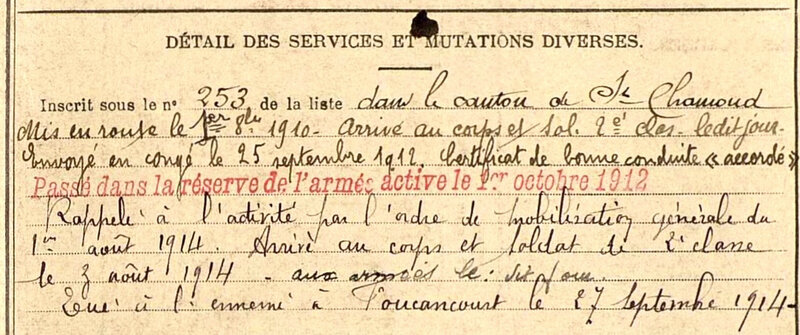 DÉTAIL DES SERVICES ET MUTATIONS DIVERSES.
Inscrit sous le n° 253 de la liste dans le canton de St Chamond
Mis en route le 1er 8bre 1910 - Arrivé au corps et sol. 2e clas. ledit jour.
Envoyé en congé le 25 septembre 1912. Certificat de bonne conduite « accordé »
Passé dans la réserve de l'armée active le 1er octobre 1912
Rappelé à l'activité par l'ordre de mobilisation générale du
1er août 1914. Arrivé au corps et soldat de 2e classe
le 3 août 1914 - aux armées le: dit jour.
Tué à l'ennemi à Foucaucourt le 27 Septembre 1914-